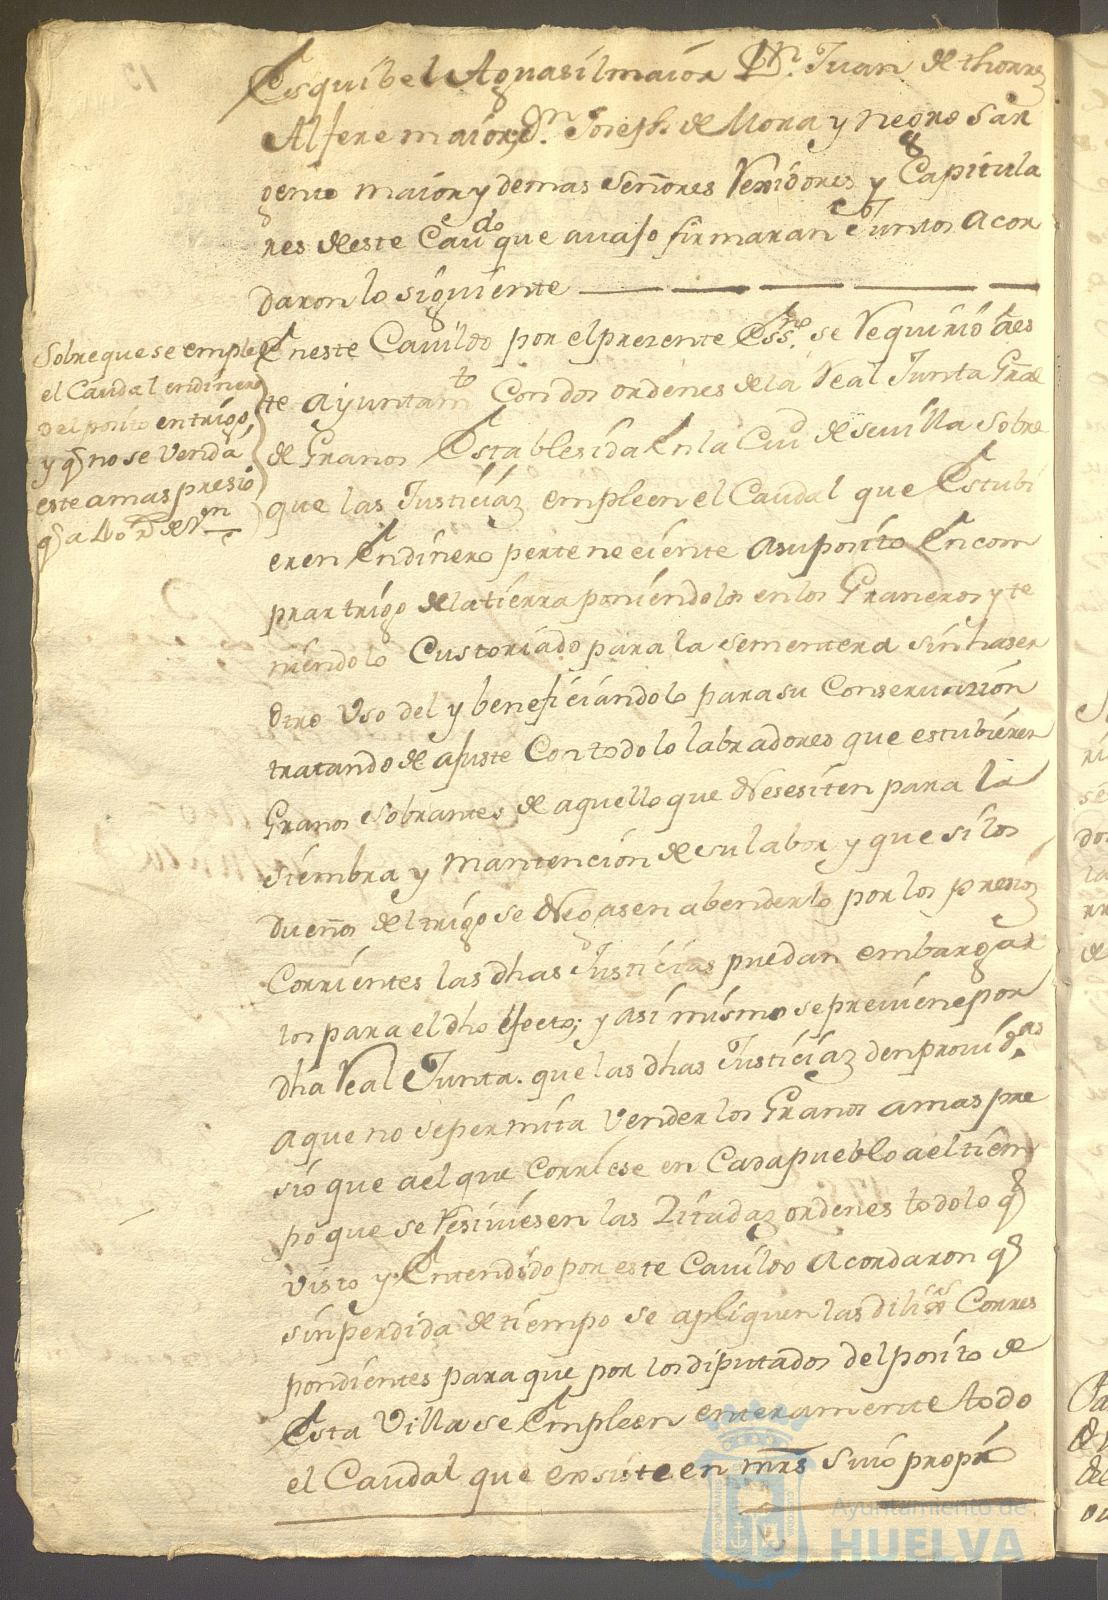 Esquibel Aguasil maior Dn. Juan de thorre
Alfere maior, Dn. Joseph de Mora y negro Sar
gento maior y demas Señores Rexidores y Capitula
res deste Cavdo que avajo firmaran Juntos Acor
daron lo siguiente
Sobre que se emple
el Caudal en dinero
del posito en trigo,
y q no se Venda
este a mas presio
q a 40 rs de Vn
En este Cavildo por el presente Essno. se Requirio a es
te Ayuntamto Con dos ordenes de la Real Junta Gral
de Granos Establesida En la Ciud de sevilla Sobre
que las Justiciaz empleen el Caudal que Estubi
eren En dinero perteneciente a su posito En com
prar trigo de la tierra poniendolo en los Graneros y te
niendolo Custoriado para la sementera sin haser
otro Uso del y beneficiandolo para su Conservazion
tratando de ajuste Con todo lo labradores que estubieren
Granos Sobrantes de aquello que Nesesiten para la
siembra y Mantencion de su labor y que si los
Dueños del trigo se Negasen a benderlo por los presioz
Corrientes las dhas Justicias puedan embargar
los para el dho efecto; y asi mismo se previene por
dha Real Junta. que las dhas Justiciaz den provid.as
a que no se permita Vender los Granos a mas pre
sio que a el que Corriese en Cada pueblo a el tiem
po que se Resiviesen las Zitadaz ordenes todo lo q
visto y Entendido por este Cavildo Acordaron q
sin perdida de tiempo se apliquen las dilias Corres
pondientes para que por los diputados del posito de
Esta Villa se Empleen enteramente todo
el Caudal que exsiste en mrs suio propi
Ayuntamiento de
HUELVA